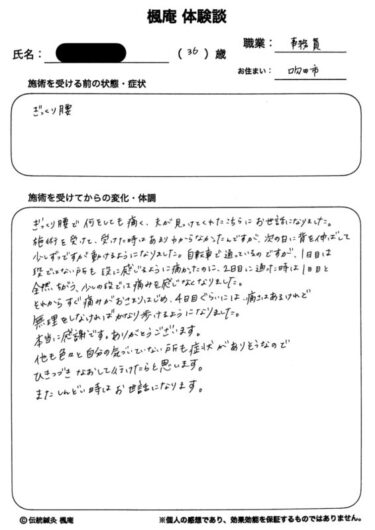 楓庵 体験談
氏名: （36）歳 職業: 事務員
お住まい: 吹田市
施術を受ける前の状態・症状
ぎっくり腰
施術を受けてからの変化・体調
ぎっくり腰で何をしても痛く、夫が見つけてくれたこちらにお世話になりました。
施術を受けて、受けた時はあまりわからなかったんですが、次の日に背を伸ばして
少しずつですが動けるようになりました。自転車で通っているのですが、1日目は
段でない所も段に感じるように痛かったのに、2日目に通った時は1日目と
全然ちがう、少しの段では痛みを感じなくなりました。
それからすぐ痛みがおさまりはじめ、4日目ぐらいには、痛さはあるけれど
無理をしなければかなり歩けるようになりました。
本当に感謝です。ありがとうございます。
他も色々と自分の気づいていない所も症状がありそうなので
ひきつづきなおして行けたらと思います。
またしんどい時はお世話になります。
©伝統鍼灸 楓庵 ※個人の感想であり、効果効能を保証するものではありません。